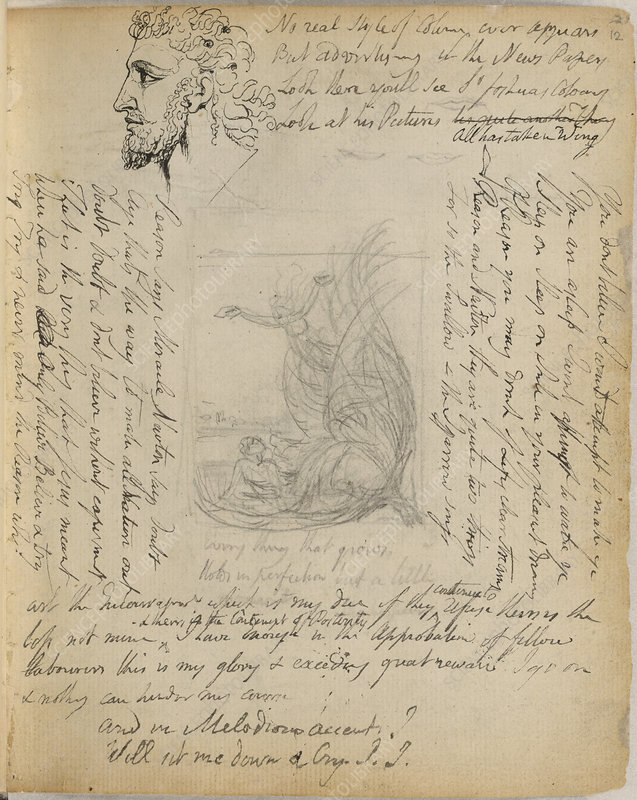 12
No real Style of Colouring ever appears
But advertising in the News Papers
Look there youll see Sr Joshuas Colouring
Look at his Pictures his quite another Thing
All has taken Wing
You dont believe I wont attempt to make ye
You are asleep I wont attempt to wake ye
Sleep on Sleep on while in your pleasant dreams
Of Reason you may drink of Lifes clear streams
Reason and Newton they are quite two things
For so the Swallow & the Sparrow sings
Reason says Miracle Newton says Doubt
Aye thats the way to make all Nature out
Doubt Doubt & dont believe without experiment
That is the very thing that Jesus meant
When he said Only Believe Believe & try
Try Try & never mind the Reason why
every thing that grows
Holds in perfection but a little
and the Encouragement which is my due if they continue to refuse theirs is the
loss not mine & theirs is the Contempt of Posterity I have Enough in the Approbation of fellow
labourers this is my glory & exceeding great reward I go on
& nothing can hinder my course
and in Melodious accents I
Will sit me down & Cry. I. I.